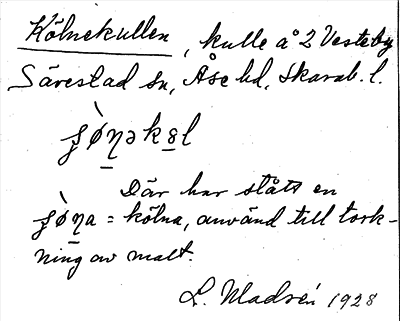 Kölnekullen, kulle å 2 Vesteby
Särestad sn, Åse hd, Skarab. l.
Där har stått en
= kölna, använd till tork-
ning av malt.
L. Madsén 1928